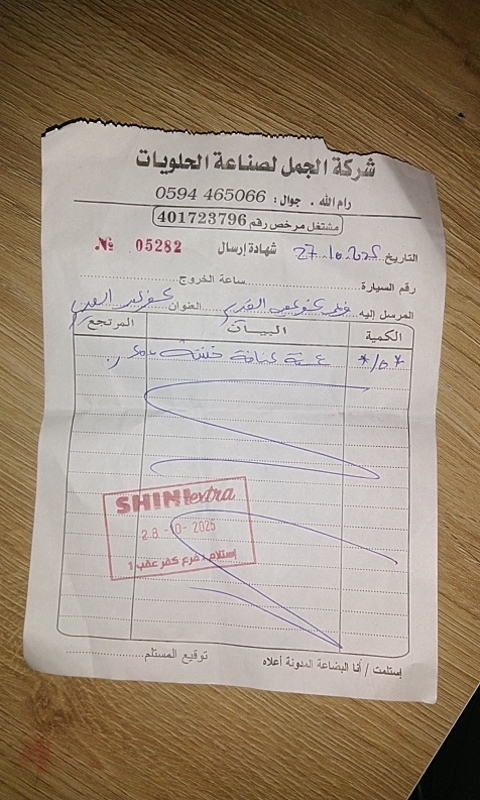 شركة الجمل لصناعة الحلويات
رام الله . جوال : 0594 465066
مشتغل مرخص رقم 401723796
التاريخ 27.10.2025 شهادة إرسال 05282 №
رقم السيارة ساعة الخروج
المرسل إليه العنوان
الكمية البيـــان المرتجع
خشنة
SHINI extra
28-10-2025
إستلام فرع كفر عقب 1
إستلمت / أنا البضاعة المدونة أعلاه توقيع المستلم